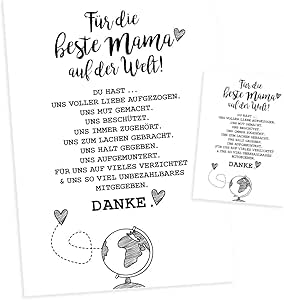 Für die
beste Mama
auf der Welt!
DU HAST ...
UNS VOLLER LIEBE AUFGEZOGEN.
UNS MUT GEMACHT.
UNS BESCHÜTZT.
UNS IMMER ZUGEHÖRT.
UNS ZUM LACHEN GEBRACHT.
UNS HALT GEGEBEN.
UNS AUFGEMUNTERT.
FÜR UNS AUF VIELES VERZICHTET
& UNS SO VIEL UNBEZAHLBARES
MITGEGEBEN.
DANKE.
Für die
beste Mama
auf der Welt!
DU HAST ...
UNS VOLLER LIEBE AUFGEZOGEN.
UNS MUT GEMACHT.
UNS BESCHÜTZT.
UNS IMMER ZUGEHÖRT.
UNS ZUM LACHEN GEBRACHT.
UNS HALT GEGEBEN.
UNS AUFGEMUNTERT.
FÜR UNS AUF VIELES VERZICHTET
& UNS SO VIEL UNBEZAHLBARES
MITGEGEBEN.
DANKE.